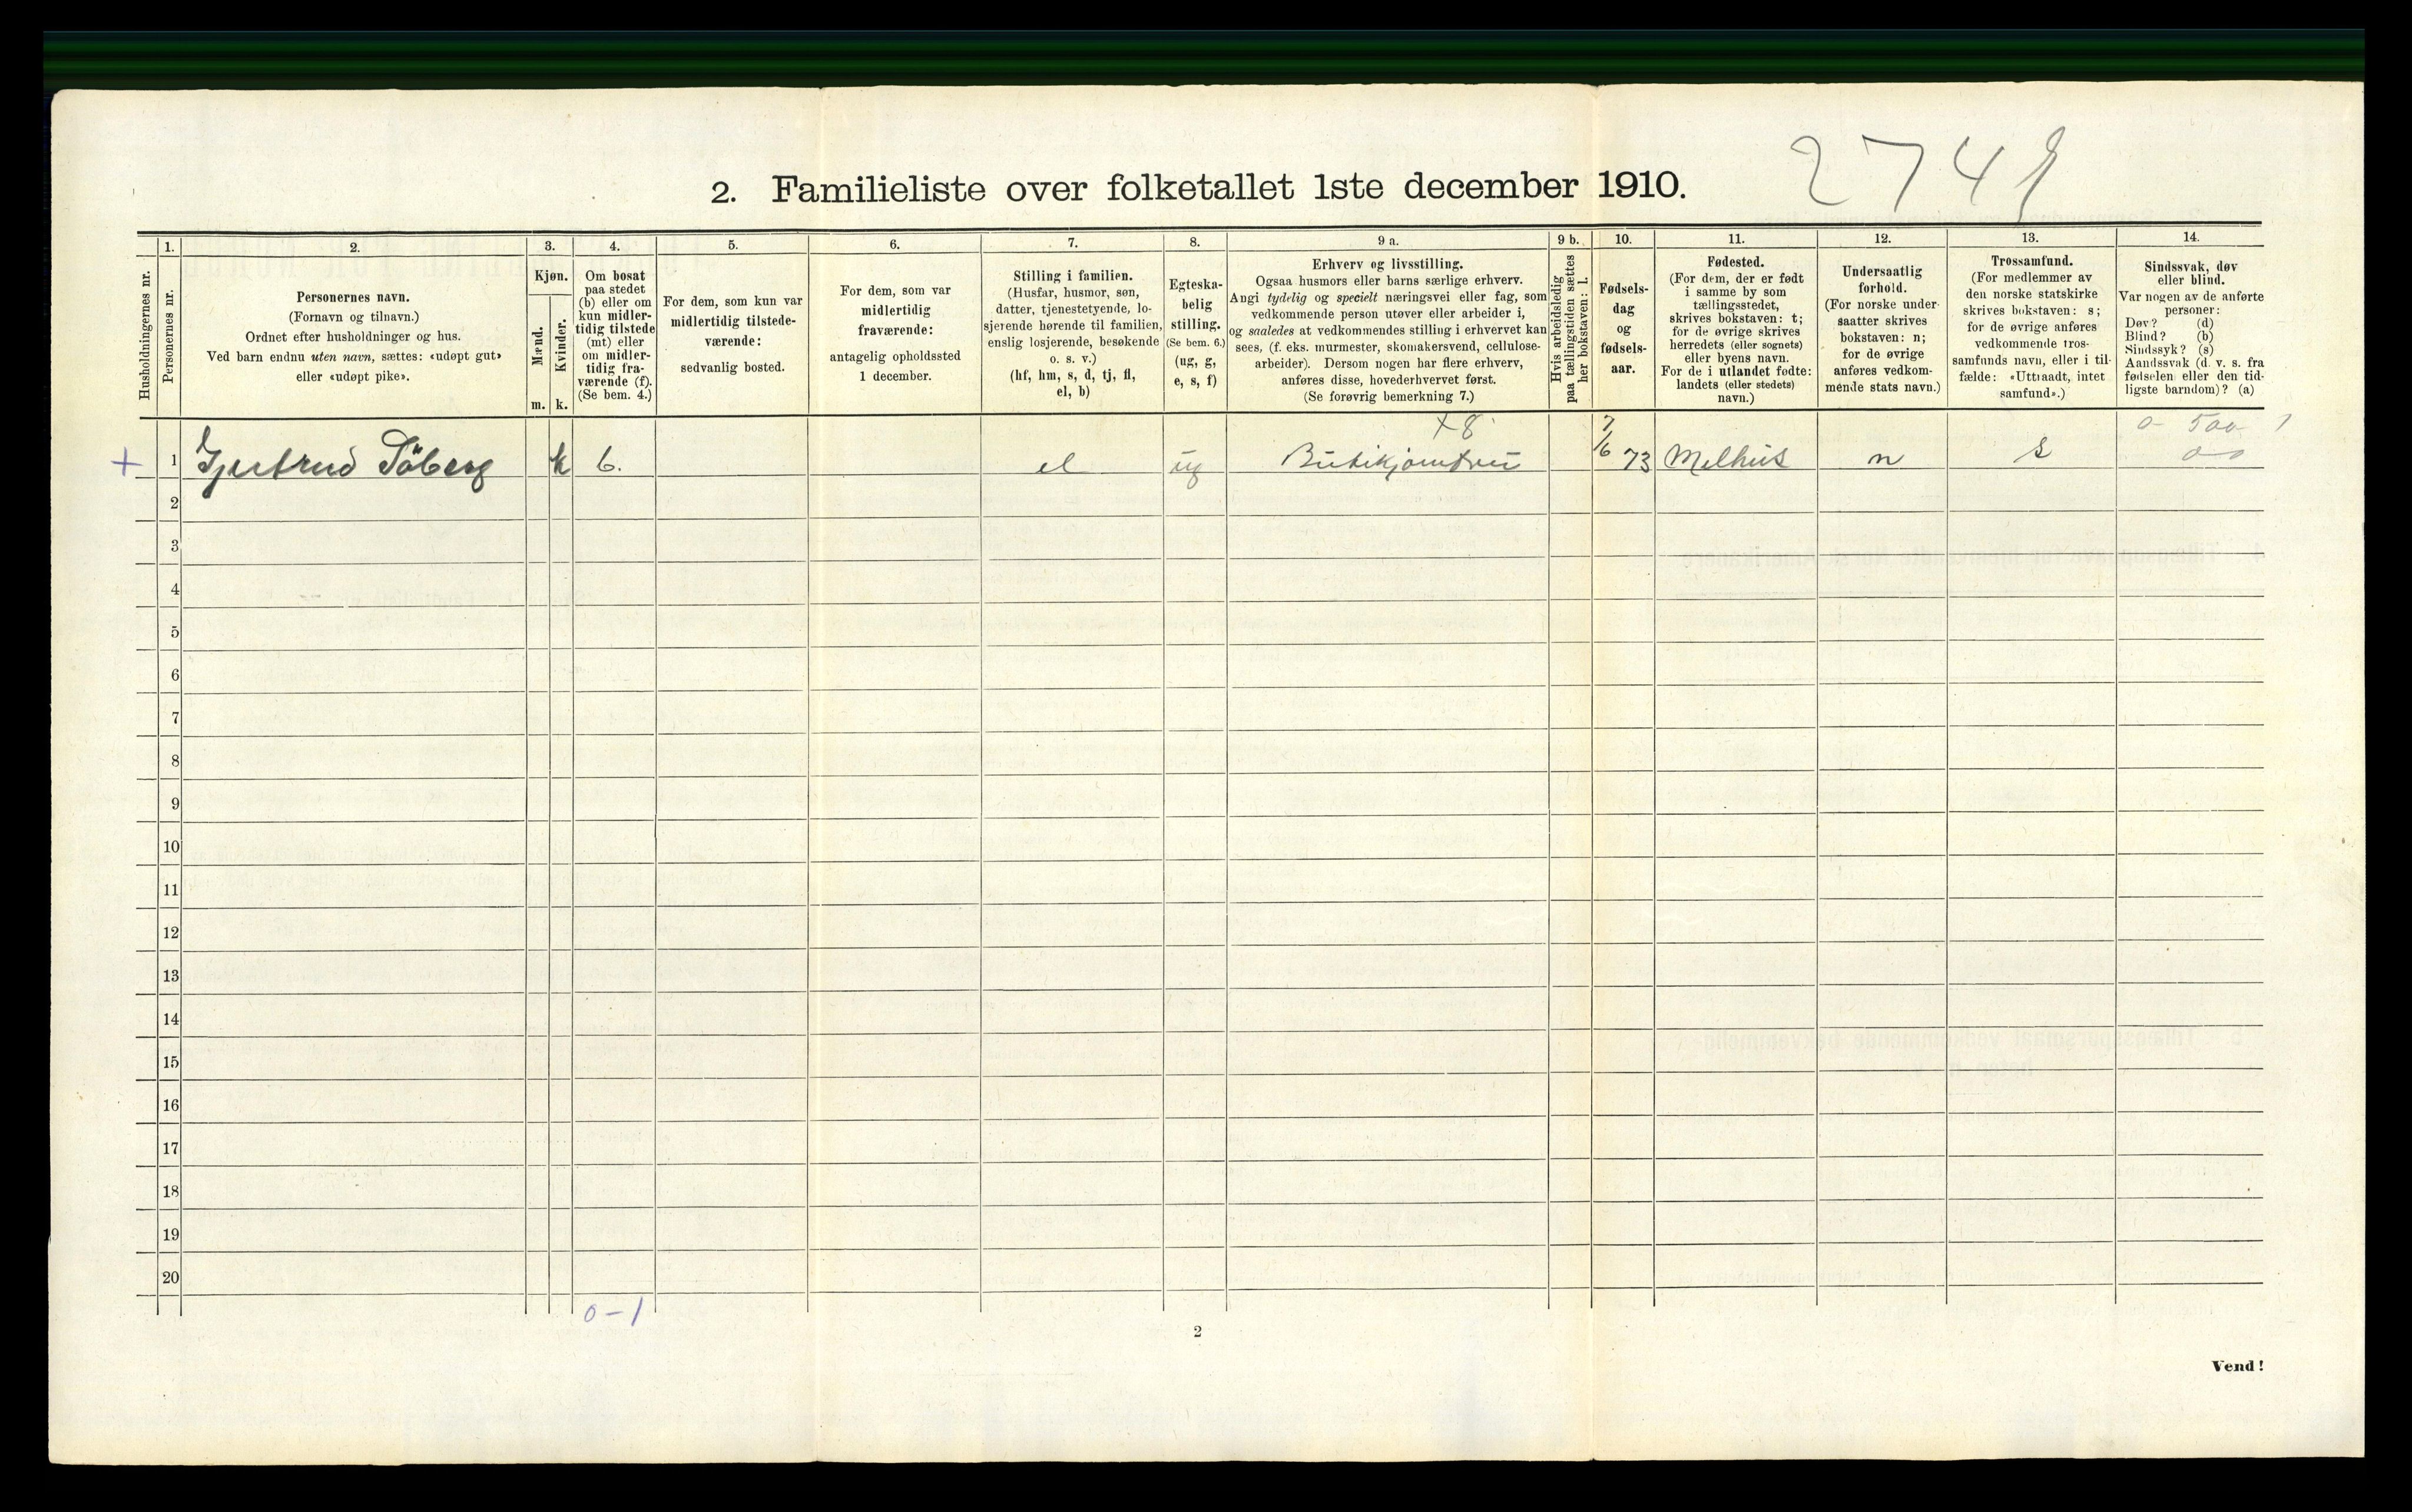 2. Familieliste over folketallet 1ste december 1910.
Husholdningernes nr.
1.
Personernes nr.
2.
Personernes navn.
(Fornavn og tilnavn.)
Ordnet efter husholdninger og hus.
Ved barn endnu uten navn, sættes: «udøpt gut»
eller «udøpt pike».
3.
Kjøn.
Mænd.
Kvinder.
m. k.
4.
Om bosat
paa stedet
(b) eller om
kun midler-
tidig tilstede
(mt) eller
om midler-
tidig fra-
værende (f).
(Se bem. 4.)
5.
For dem, som kun var
midlertidig tilstede-
værende:
sedvanlig bosted.
6.
For dem, som var
midlertidig
fraværende:
antagelig opholdssted
1 december.
7.
Stilling i familien.
(Husfar, husmor, søn,
datter, tjenestetyende, lo-
sjerende hørende til familien,
enslig losjerende, besøkende
o. s. v.)
(hf, hm, s, d, tj, fl,
el, b)
8.
Egteska-
belig
stilling.
(Se bem. 6.)
(ug, g,
e, s, f)
9 a.
Erhverv og livsstilling.
Ogsaa husmors eller barns særlige erhverv.
Angi tydelig og specielt næringsvei eller fag, som
vedkommende person utøver eller arbeider i,
og saaledes at vedkommendes stilling i erhvervet kan
sees, (f. eks. murmester, skomakersvend, cellulose-
arbeider). Dersom nogen har flere erhverv,
anføres disse, hovederhvervet først.
(Se forøvrig bemerkning 7.)
9 b.
Hvis arbeidsledig
paa tællingstiden sættes
her bokstaven: l.
10.
Fødsels-
dag
og
fødsels-
aar.
11.
Fødested.
(For dem, der er født
i samme by som
tællingsstedet,
skrives bokstaven: t;
for de øvrige skrives
herredets (eller sognets)
eller byens navn.
For de i utlandet fødte:
landets (eller stedets)
navn.)
12.
Undersaatlig
forhold.
(For norske under-
saatter skrives
bokstaven: n;
for de øvrige
anføres vedkom-
mende stats navn.)
13.
Trossamfund.
(For medlemmer av
den norske statskirke
skrives bokstaven: s;
for de øvrige anføres
vedkommende tros-
samfunds navn, eller i til-
fælde: «Uttraadt, intet
samfund».)
14.
Sindssvak, døv
eller blind.
Var nogen av de anførte
personer:
Døv? (d)
Blind? (b)
Sindssyk? (s)
Aandssvak (d. v. s. fra
fødselen eller den tid-
ligste barndom)? (a)
+8 0- 500- 1
+ 1 Gjertrud Söberg k b. el ug Butikjomfru 7/6 73 Melhus n s 0-0
2
3
4
5
6
7
8
9
10
11
12
13
14
15
16
17
18
19
20
0-1
2
Vend!